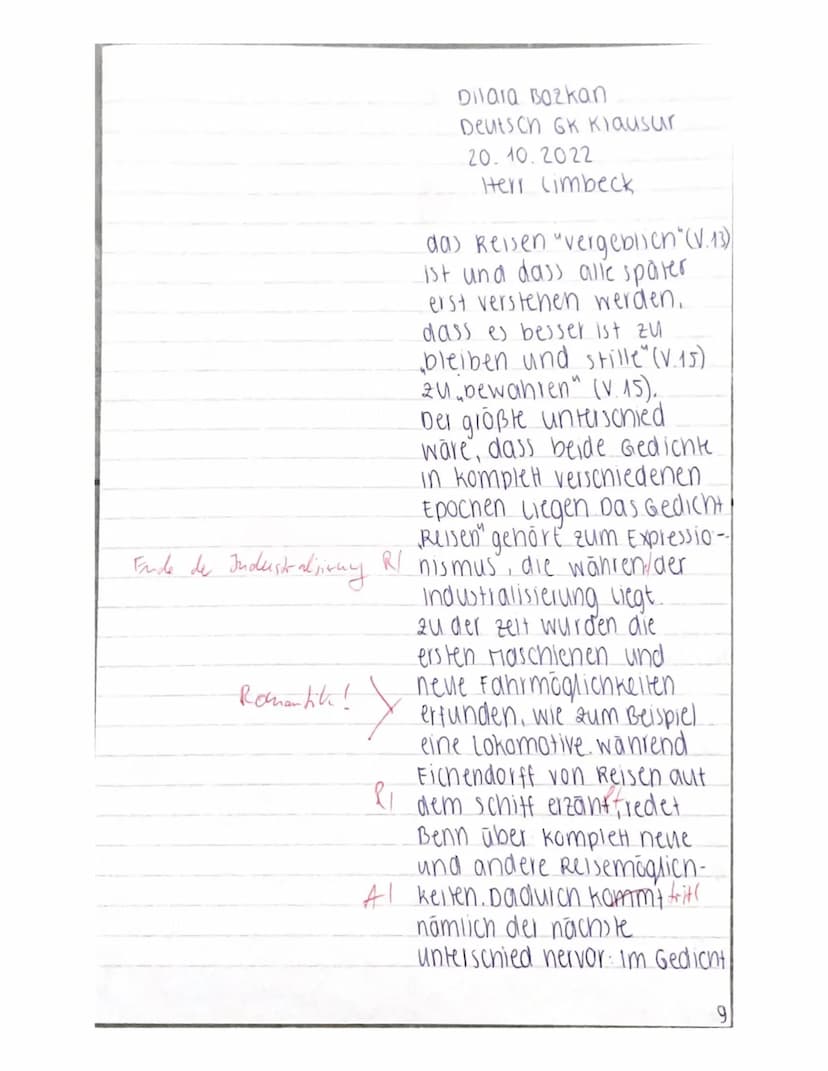 Dilara Bozkan
Deutsch GK Klausur
20.10.2022
Herr Limbeck
das Reisen "vergeblich" (V.13)
ist und dass alle später
erst verstehen werden,
dass es besser ist zu
„bleiben und stille" (V.15)
zu „bewahren" (V.15).
Der größte unterschied
wäre, dass beide Gedichte
in komplett verschiedenen
Epochen liegen Das Gedicht
„Reisen" gehört zum Expressio-
Ende der Industrialisierung R| nismus, die während der
industrialisierung liegt.
zu der zeit wurden die
ersten Maschienen und
Romantik! neue Fahrmöglichkeiten
erfunden, wie zum Beispiel
eine Lokomotive. während
Eichendorff von Reisen auf
R| dem schiff erzählt, redet
Benn über komplett neue
und andere Reisemöglich-
A| keiten. Dadurch kommt tritt
nämlich der nächste
unterschied hervor: Im Gedicht
9